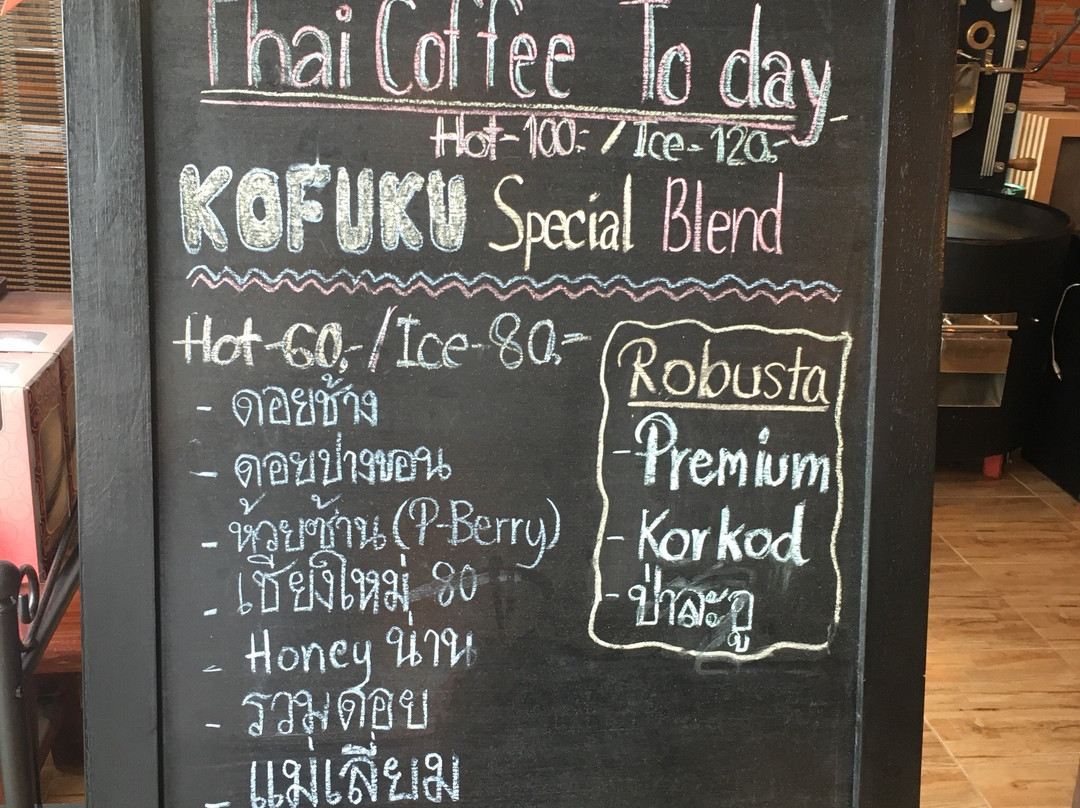 Thai Coffee To day
Hot-100.-/Ice-120.-
KOFUKU Special Blend
Hot-60.-/Ice-80.-
- ดอยช้าง
- ดอยปางขอน
- ห้วยซ้าน (P-Berry)
- เชียงใหม่ 80
- Honey น่าน
- รวมดอย
- แม่เลี่ยม
Robusta
- Premium
- Korkod
- ป่าละอู